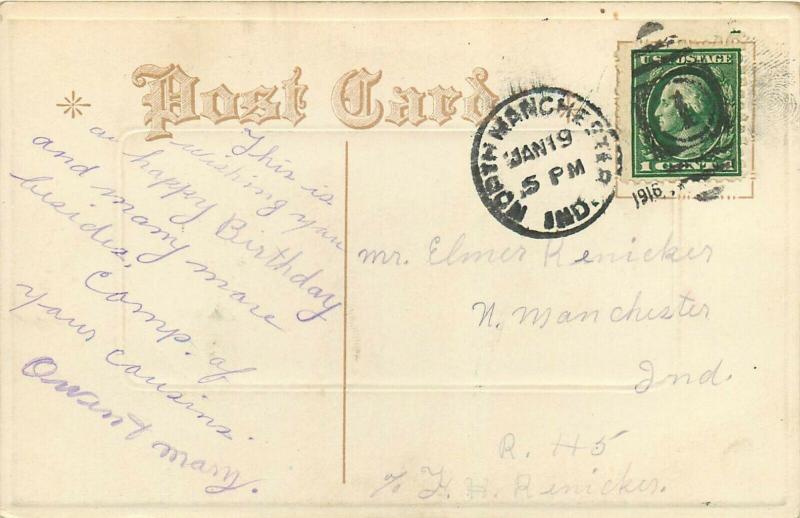 Post Card
This is
wishing you
a happy Birthday
and many more
besides. Comp. of
your cousins.
Owen & Mary.
NORTH MANCHESTER IND.
JAN 19
5 PM
1916
U.S. POSTAGE
1 CENT 1
Mr. Elmer Renicker
N. Manchester
Ind.
R. #5
c/o H. H. Renicker.